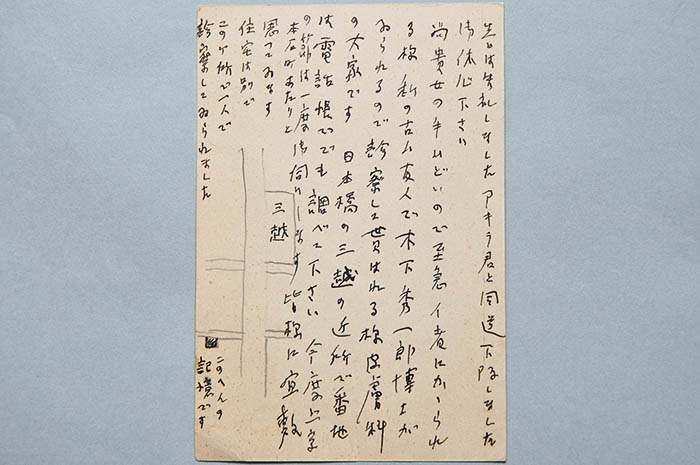 先日は失礼しました アキラ君と同道下阪しました
御休心下さい
尚貴女の手ひどいので至急イ者にかゝられ
る様 私の古い友人で木下秀一郎博士が
ゐられるので診察して貰はれる様 皮膚科
の大家です 日本橋の三越の近所で番地
は電話帳ででも調べて下さい 今度上京
の節は一度御伺ひします 皆様に宜敷
本石町あたりと
思つてゐます
住宅は別で
このケ所で一人で
診察してゐられました
三越
このへんの
記憶です